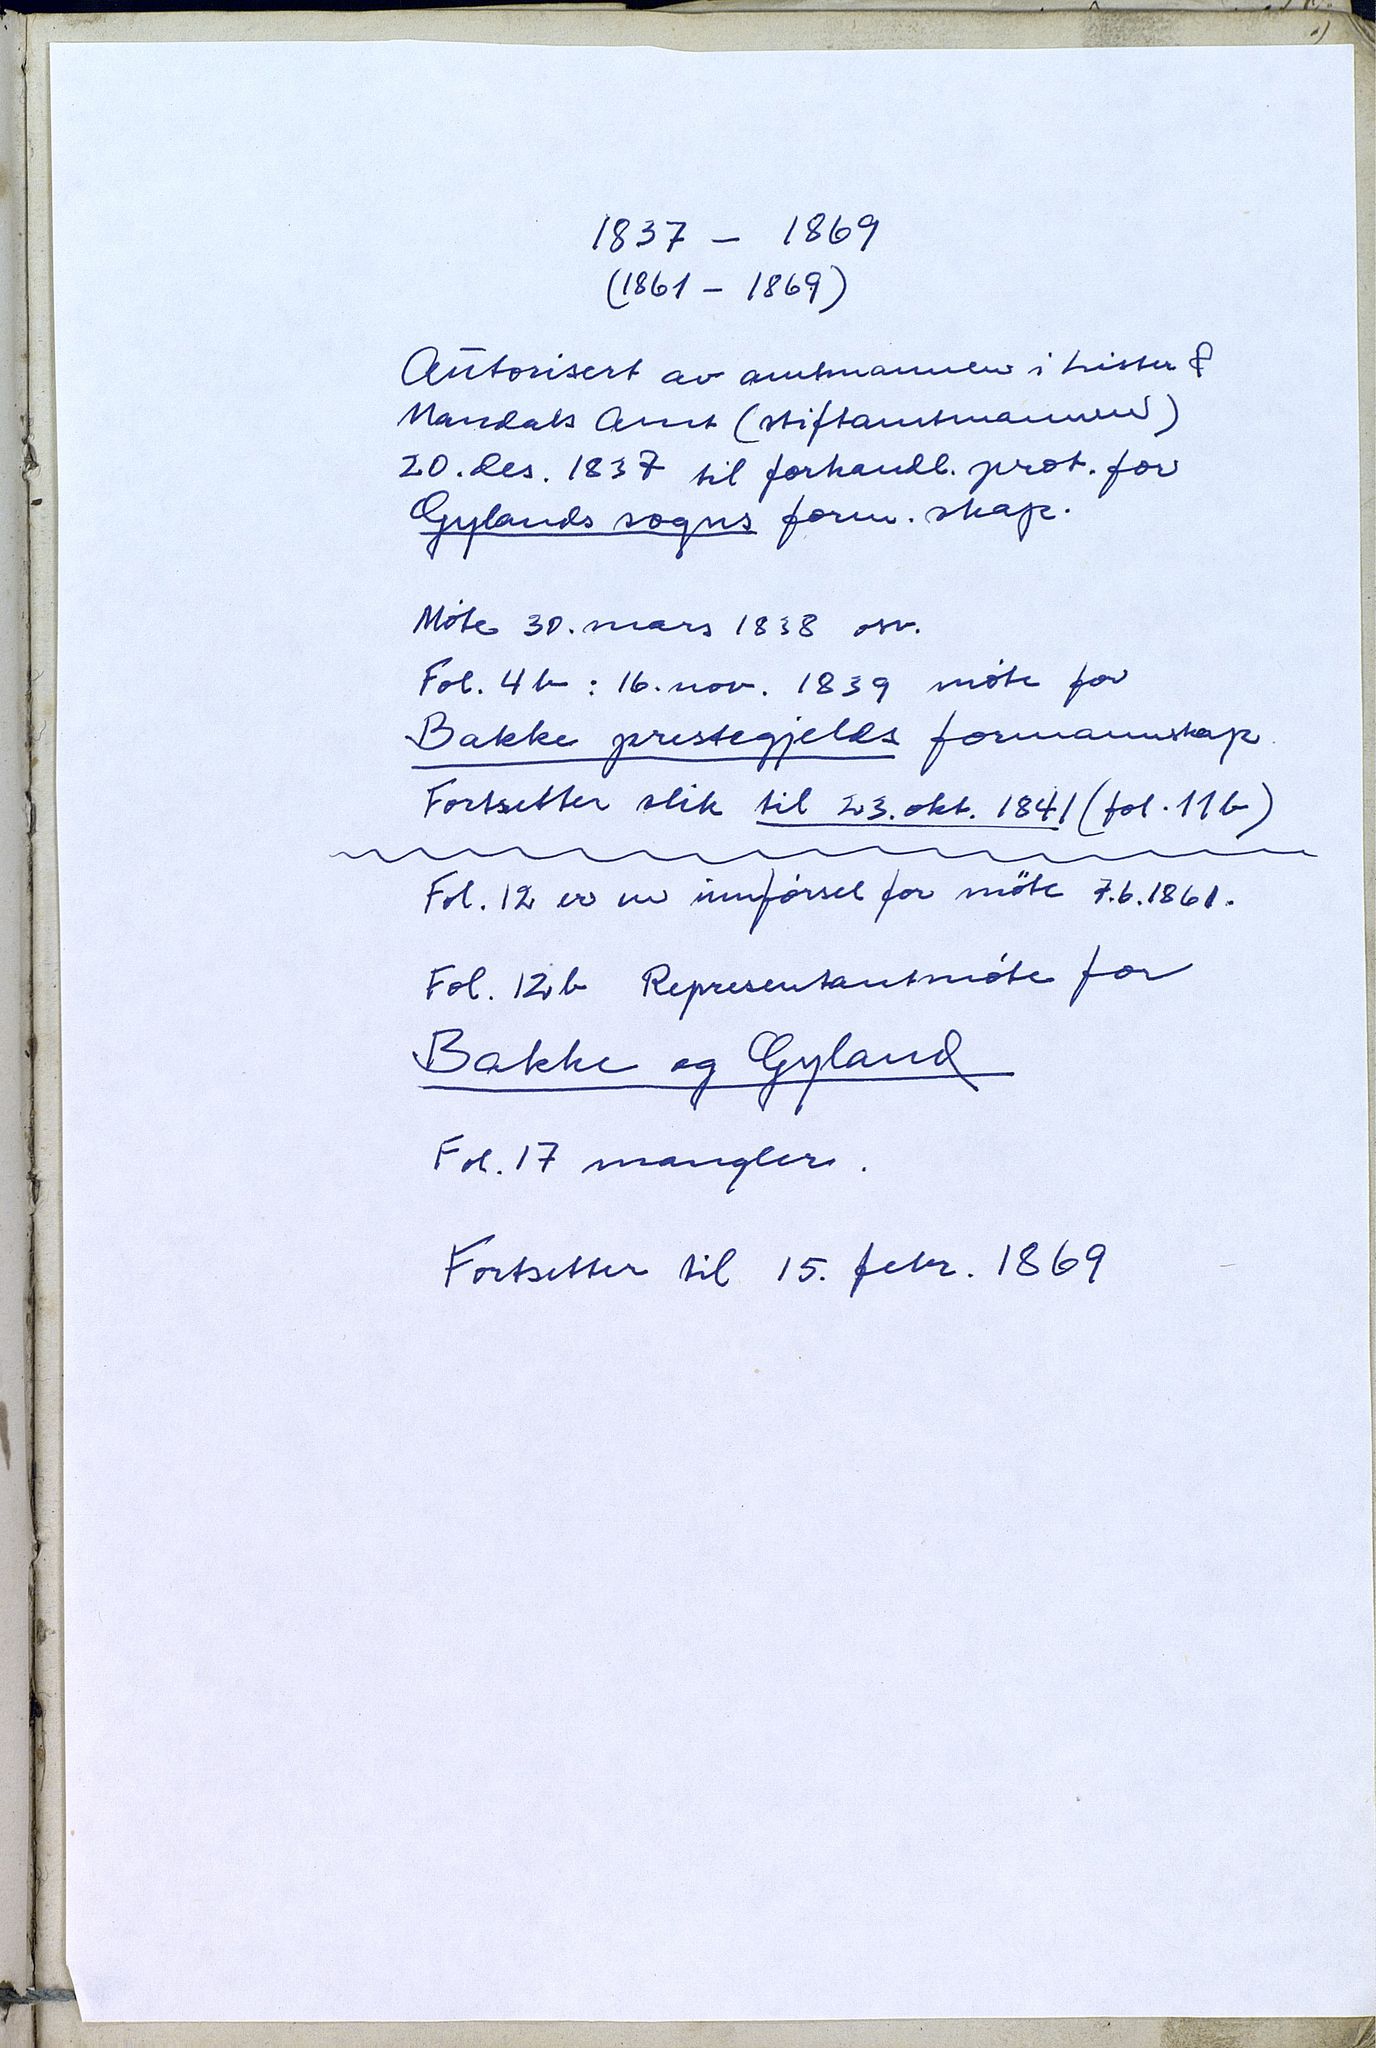 1837 – 1869
(1861 – 1869)
Autorisert av amtmannen i Lister &
Mandals Amt (stiftamtmannen)
20. des. 1837 til forhandl. prot. for
Gylands sogns form. skap.
Møte 30. mars 1838 osv.
Fol. 4b : 16. nov. 1839 møte for
Bakke prestegjelds formannskap
Fortsetter slik til 23. okt. 1841 (fol. 11b)
Fol. 12 er en innførsel for møte 7.6.1861.
Fol. 12b Representantmøte for
Bakke og Gyland
Fol. 17 mangler.
Fortsetter til 15. febr. 1869